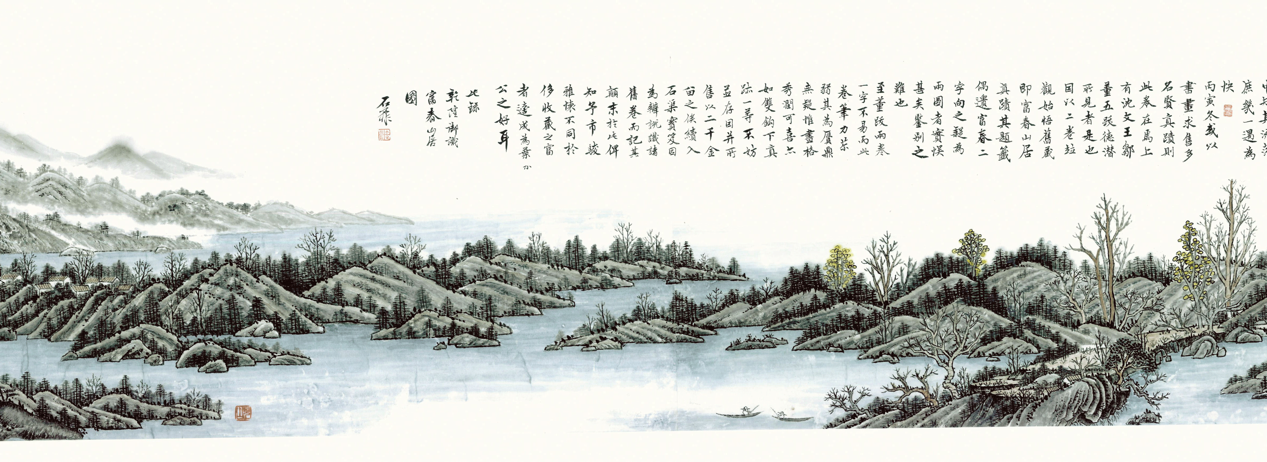 庶幾一遇為
快
丙寅冬或以
書畫求售多
名賢真蹟則
此卷在焉上
有沈文王鄒
董五跋德潛
所見者是也
因以二卷並
觀始悟舊藏
即富春山居
真蹟其題籤
偶遺富春二
字向之疑為
兩圖者實誤
甚矣鑒別之
難也
至董跋兩卷
一字不易而此
卷筆力苶
弱其為贋鼎
無疑惟畫格
秀潤可喜亦
如雙鉤下真
跡一等不妨
並存因并所
售以二千金
留之俟續入
石渠寶笈因
為辨說識諸
舊卷而記其
顛末於此俾
知予市駿
雅懷不同於
侈收藏之富
者遂成為葉
公之好耳
此跡
乾隆御識
富春山居
圖
石